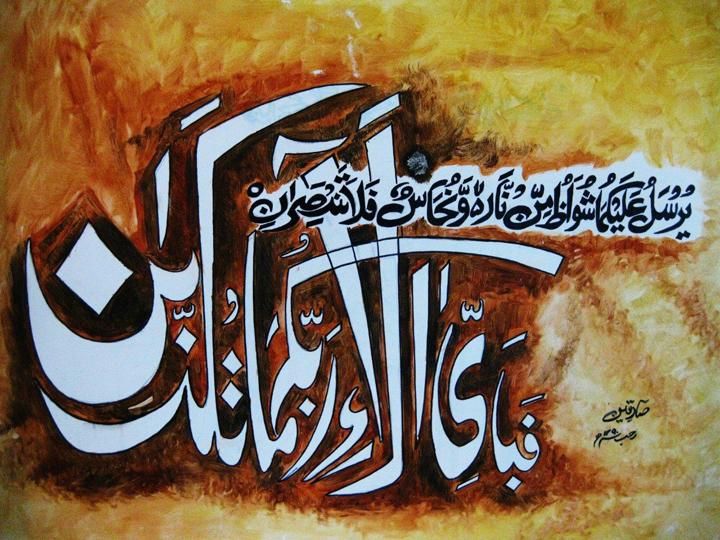 يُرْسَلُ عَلَيْكُمَا شُوَاظٌ مِّنْ نَّارٍ وَّنُحَاسٌ فَلَا تَنْتَصِرَانِ
فَبِاَيِّ اٰلَاۤءِ رَبِّكُمَا تُكَذِّبٰنِ
صادقین